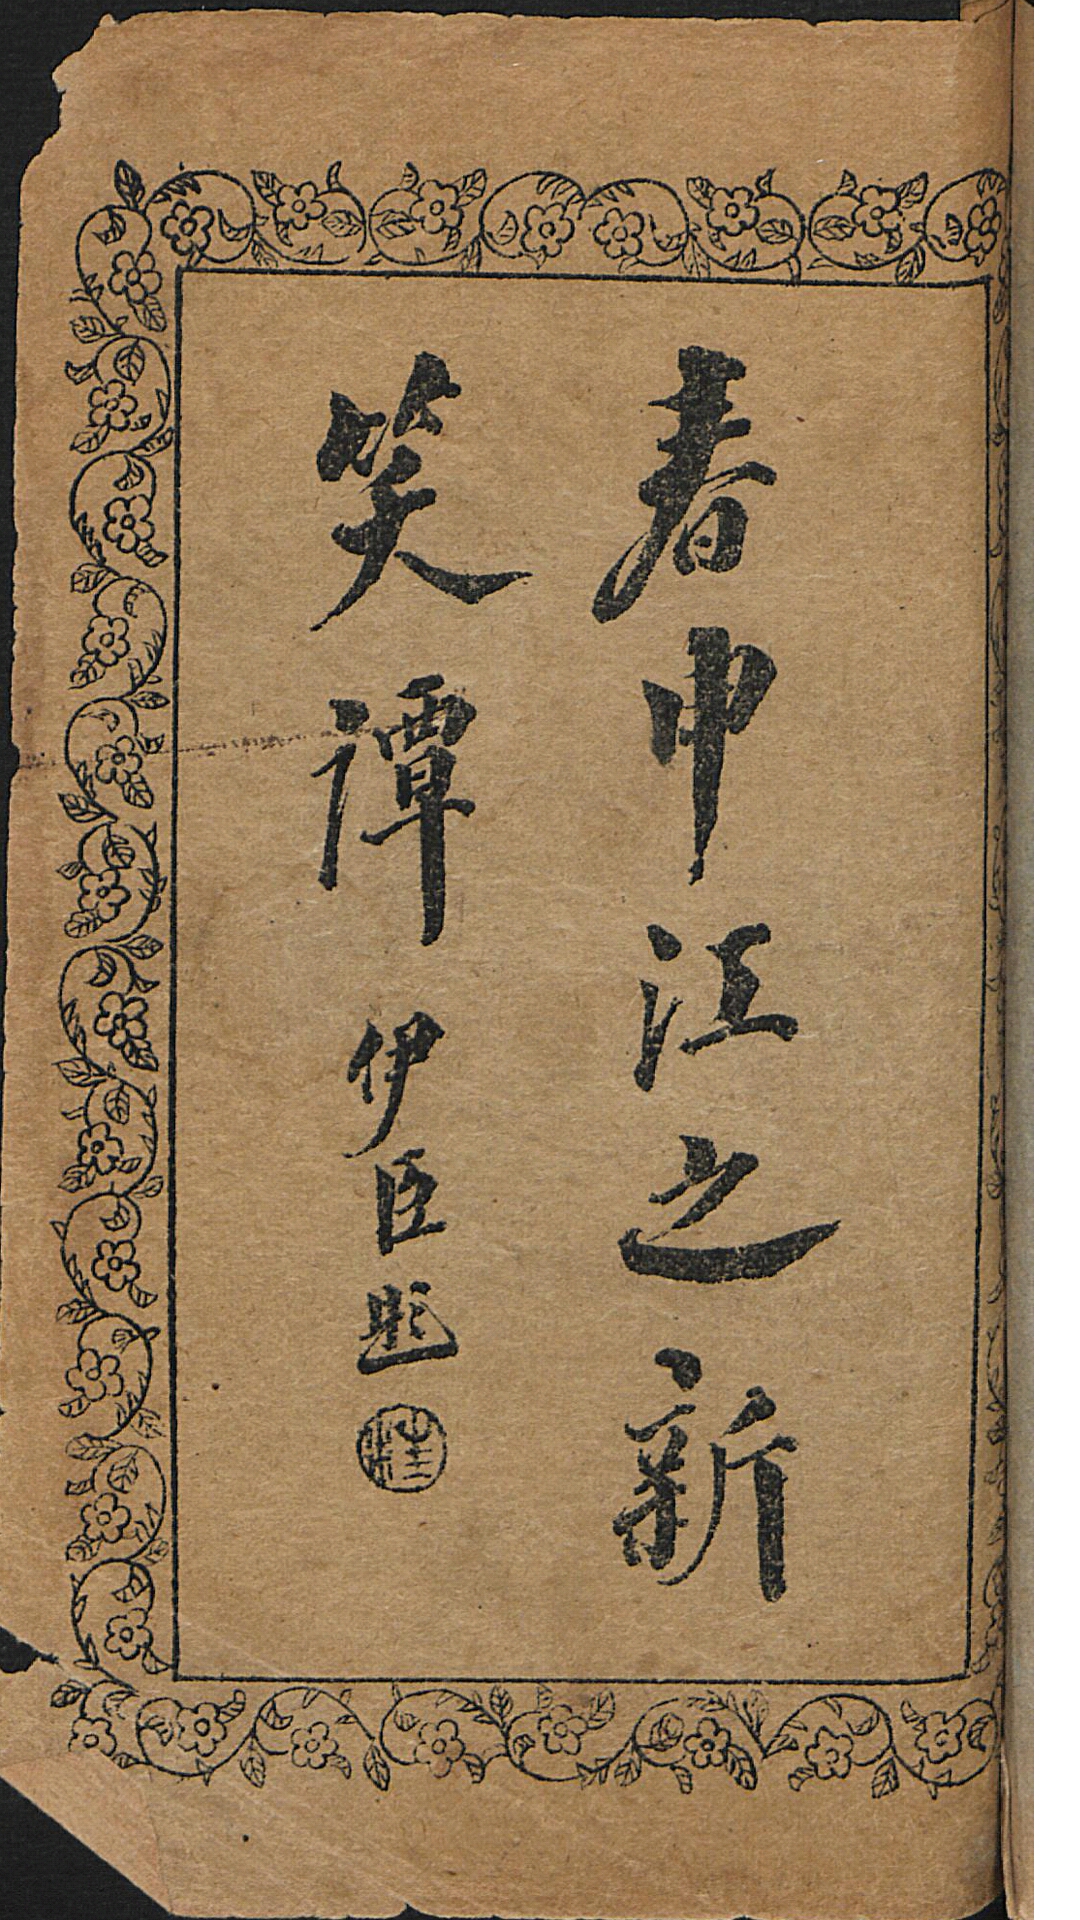 春申江之新
笑譚 伊臣題